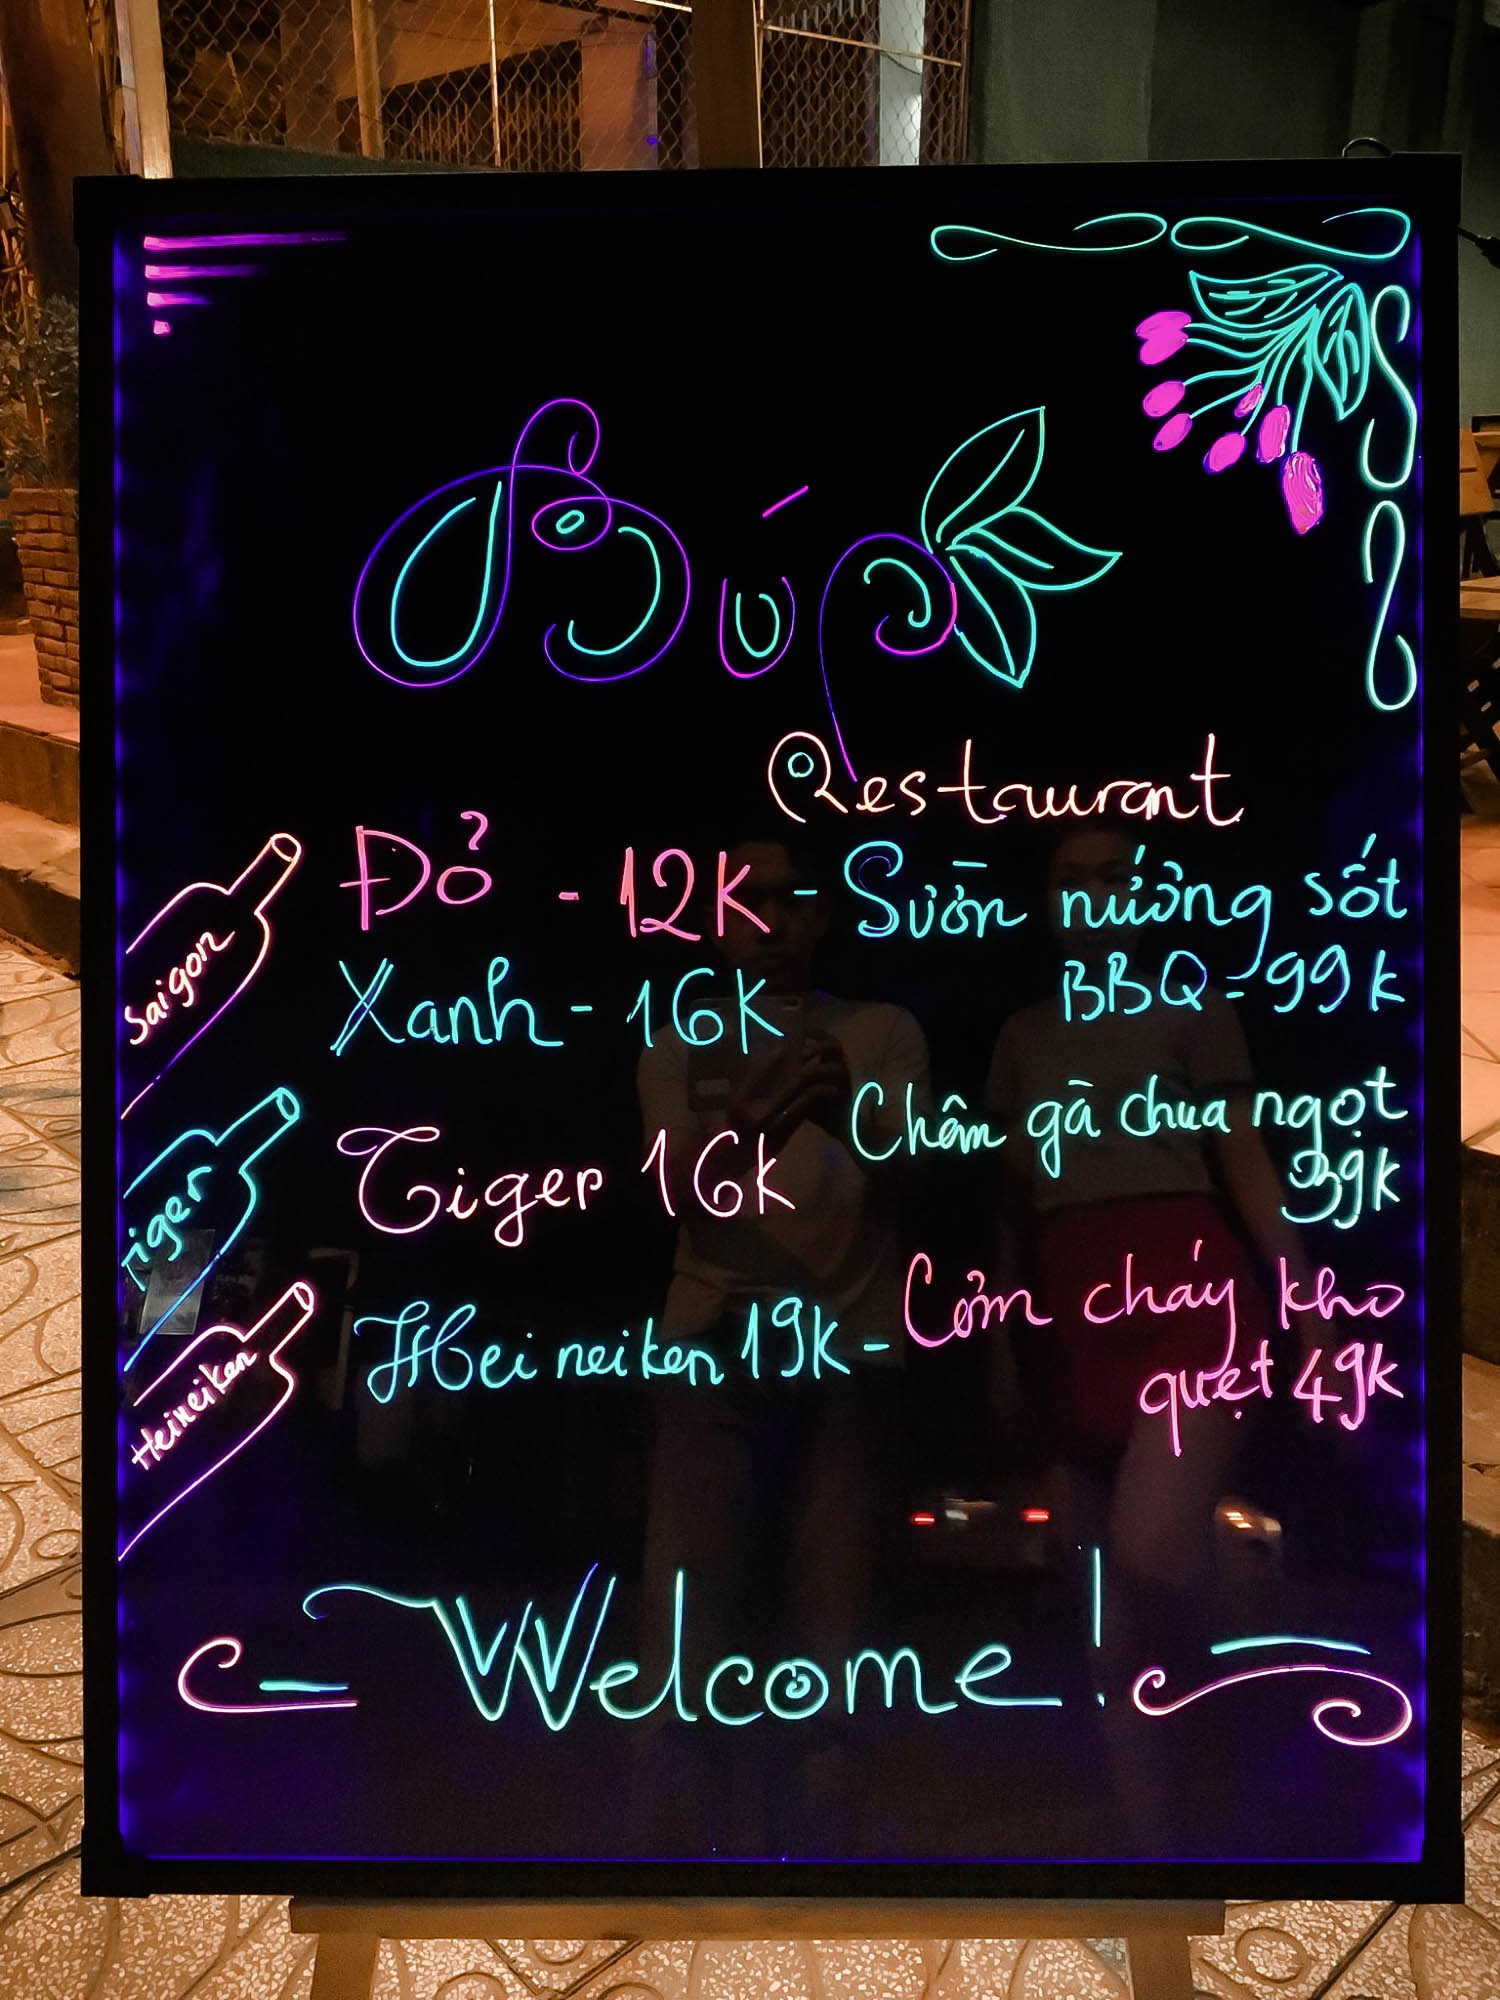 Búp
Restaurant
Saigon
Đỏ - 12K
Xanh - 16K
Tiger
Tiger 16K
Heineiken
Heineiken 19K
- Sườn nướng sốt
BBQ - 99k
Chân gà chua ngọt
39k
- Cơm cháy kho
quẹt 49k
Welcome!